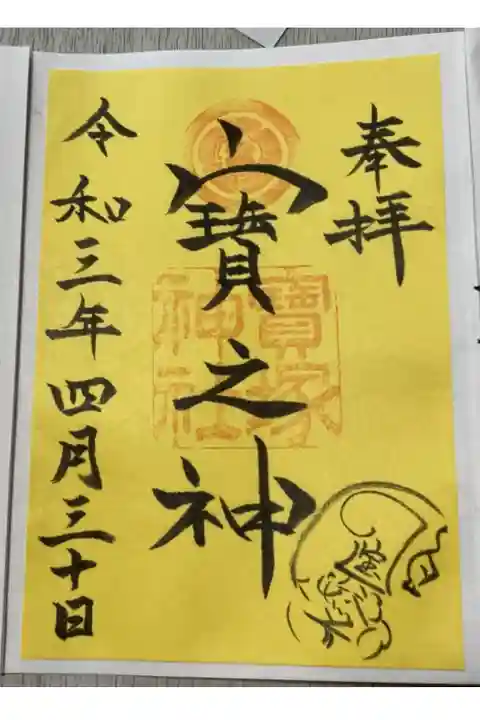 奉拝
寳之神
寳塚
神社
令和三年四月三十日